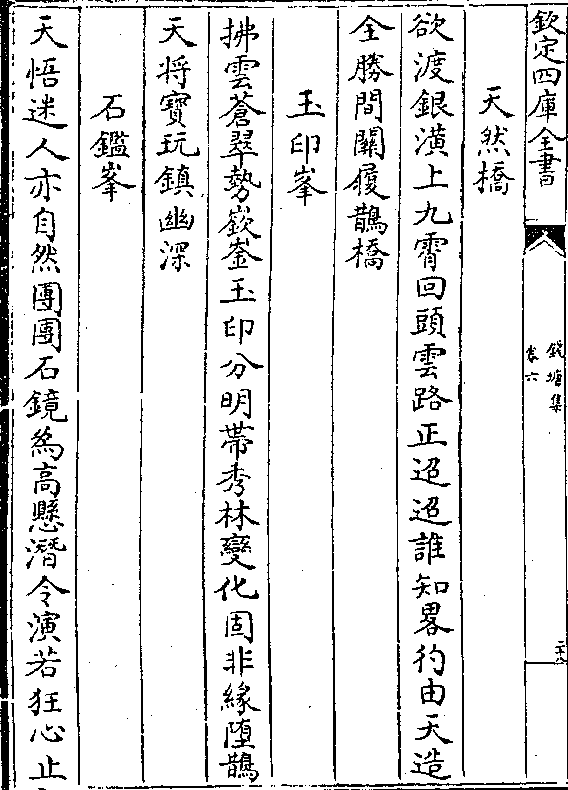 欽定四庫全書
錢塘集
卷六
天然橋
欲渡銀潢上九霄回頭雲路正迢迢誰知畧彴由天造
全勝間關履鵲橋
玉印峯
拂雲蒼翠勢嶔崟玉印分明帶秀林變化固非緣墮鵲
天将寶玩鎮幽深
石鑑峯
天悟迷人亦自然團團石鏡為高懸潛令演若狂心止